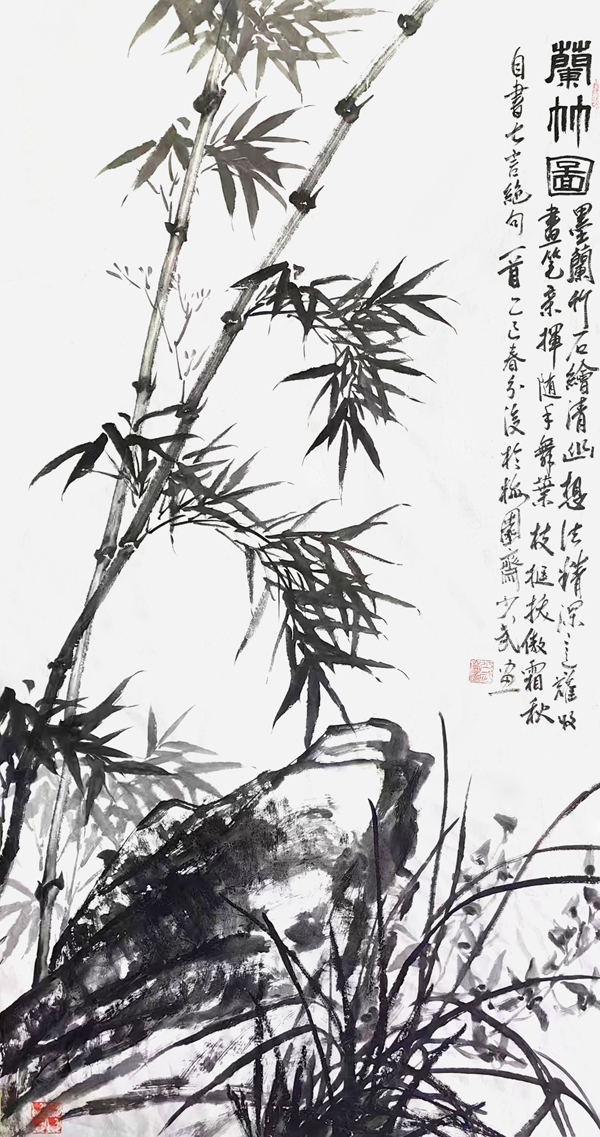 蘭竹圖
墨蘭竹石繪清幽想法精深意難收
畫笔柔揮随手舞葉枝挺拔傲霜秋
自書七言絶句一首乙巳春分後於梅園齋少武畫